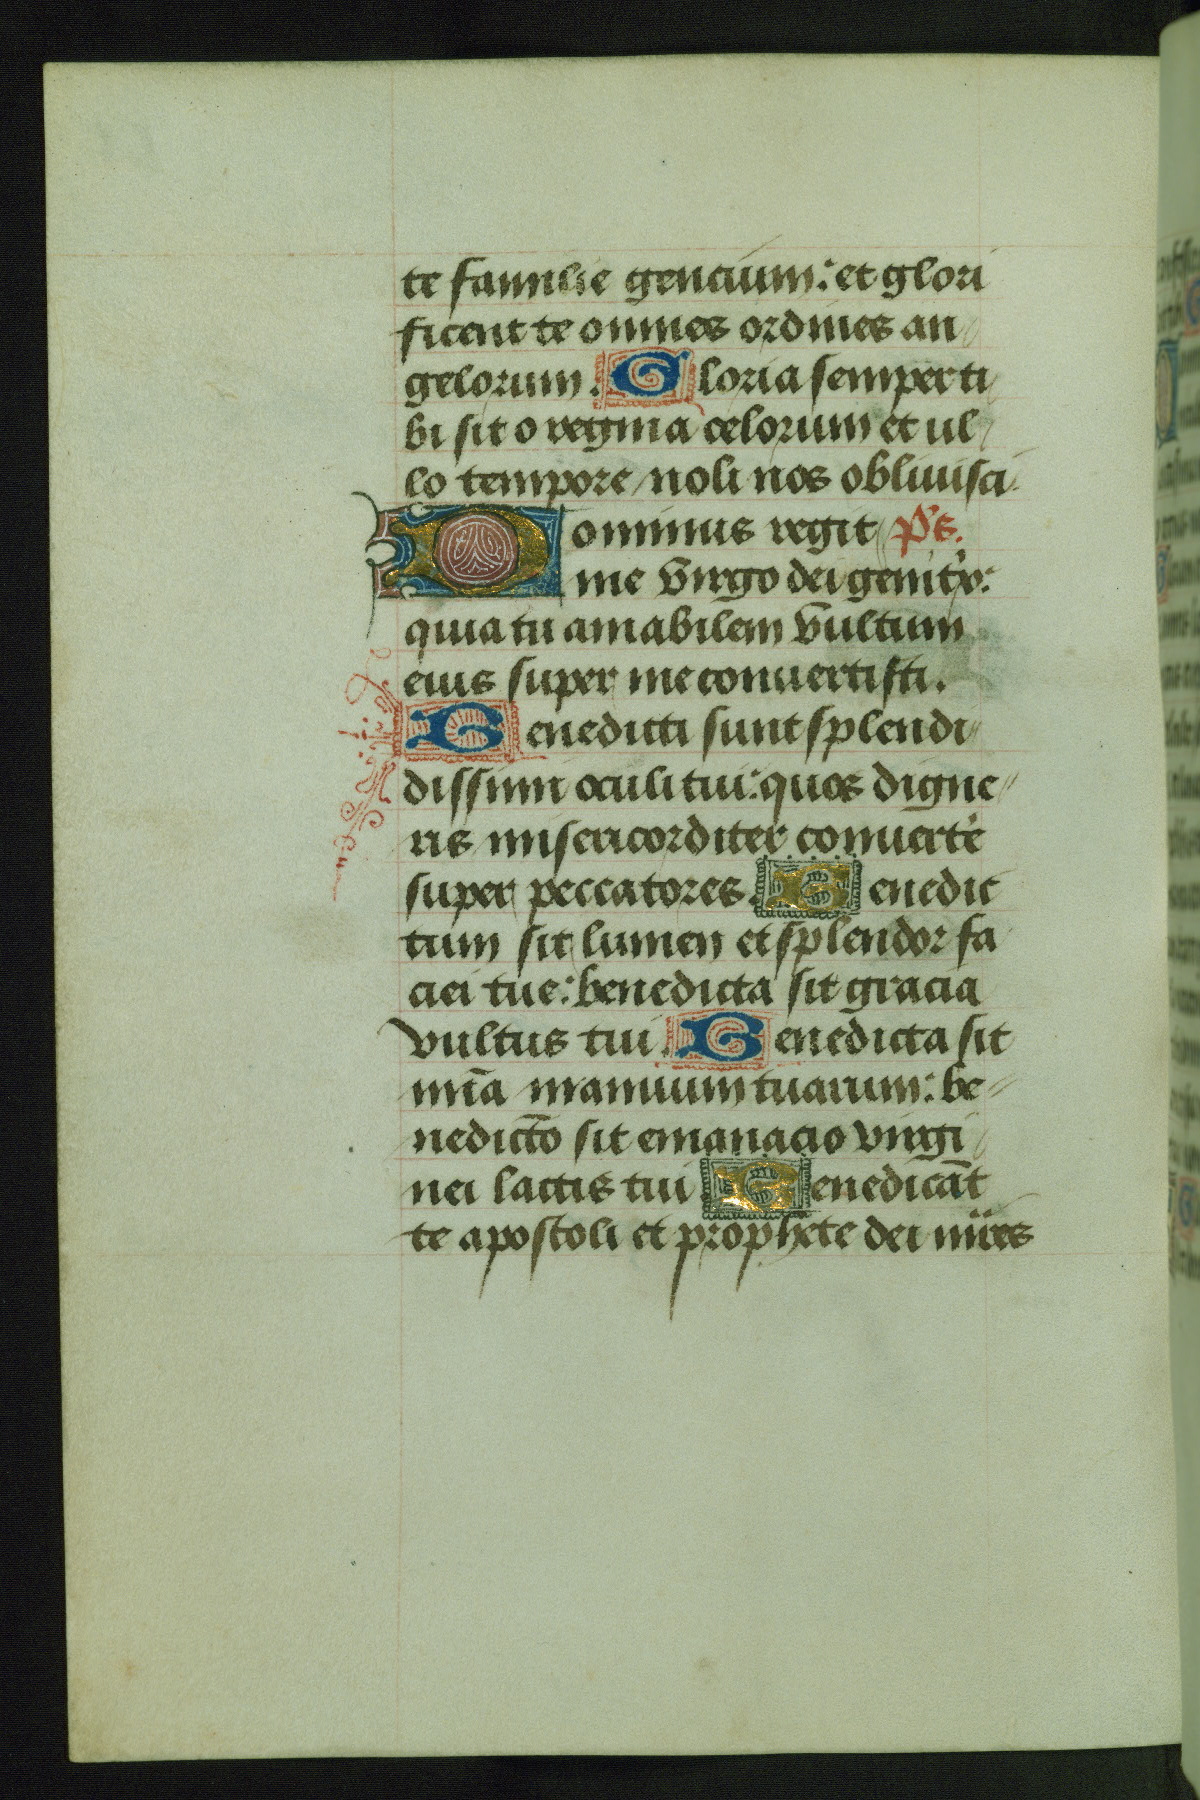 te familie gencium: et glori
ficent te omnes ordines an
gelorum. Gloria semper ti
bi sit o regina celorum et ul
lo tempore noli nos obliuisci.
Dominus regit Ps.
me virgo dei genitͥx:
quia tu amabilem vultum
eius super me conuertisti.
Benedicti sunt splendi
dissimi oculi tui: quos digne
ris misericorditer conuerte
super peccatores. Benedic
tum sit lumen et splendor fa
ciei tue: benedicta sit gracia
vultus tui. Benedicta sit
mīa manuum tuarum: be-
nedictō sit emanacio virgi
nei lactis tui Benedicāt
te apostoli et prophete dei